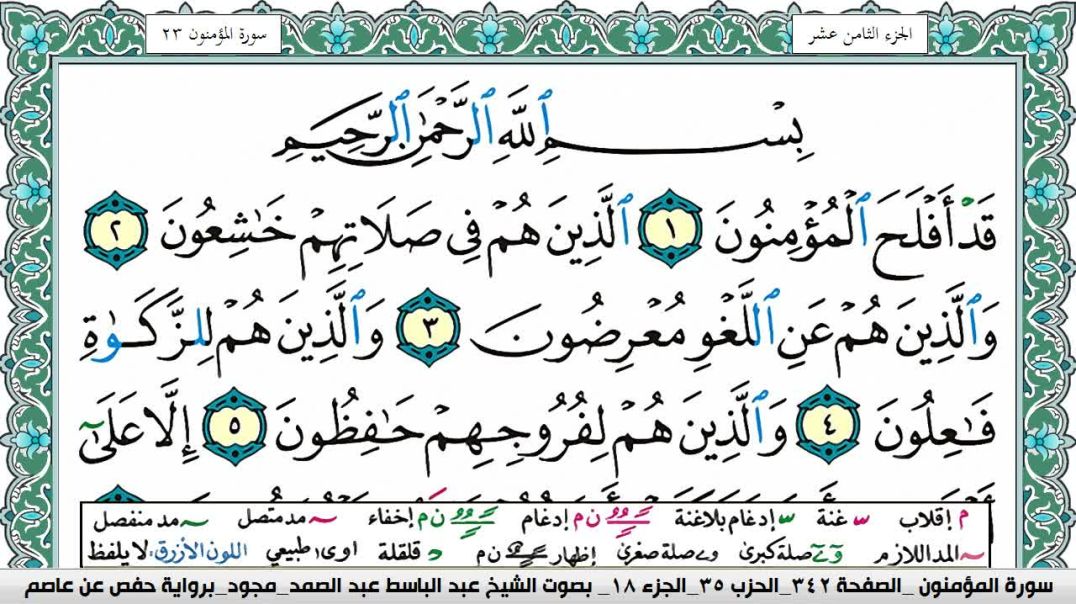 الجزء الثامن عشر
سورة المؤمنون ٢٣
بِسْمِ ٱللَّهِ ٱلرَّحْمَٰنِ ٱلرَّحِيمِ
قَدْ أَفْلَحَ ٱلْمُؤْمِنُونَ ١ ٱلَّذِينَ هُمْ فِى صَلَاتِهِمْ خَٰشِعُونَ ٢
وَٱلَّذِينَ هُمْ عَنِ ٱللَّغْوِ مُعْرِضُونَ ٣ وَٱلَّذِينَ هُمْ لِلزَّكَوٰةِ
فَٰعِلُونَ ٤ وَٱلَّذِينَ هُمْ لِفُرُوجِهِمْ حَٰفِظُونَ ٥ إِلَّا عَلَىٰٓ
م إقلاب غنة إدغام بلاغنة ن م إدغام ن م إخفاء مد متصل مد منفصل
المد اللازم صلة كبرى صلة صغرى إظهار ن م قلقلة د اوى طبيعي اللون الأزرق: لا يلفظ
سورة المؤمنون _الصفحة ٣٤٢_الحزب ٣٥_الجزء ١٨_ بصوت الشيخ عبد الباسط عبد الصمد_مجود_برواية حفص عن عاصم